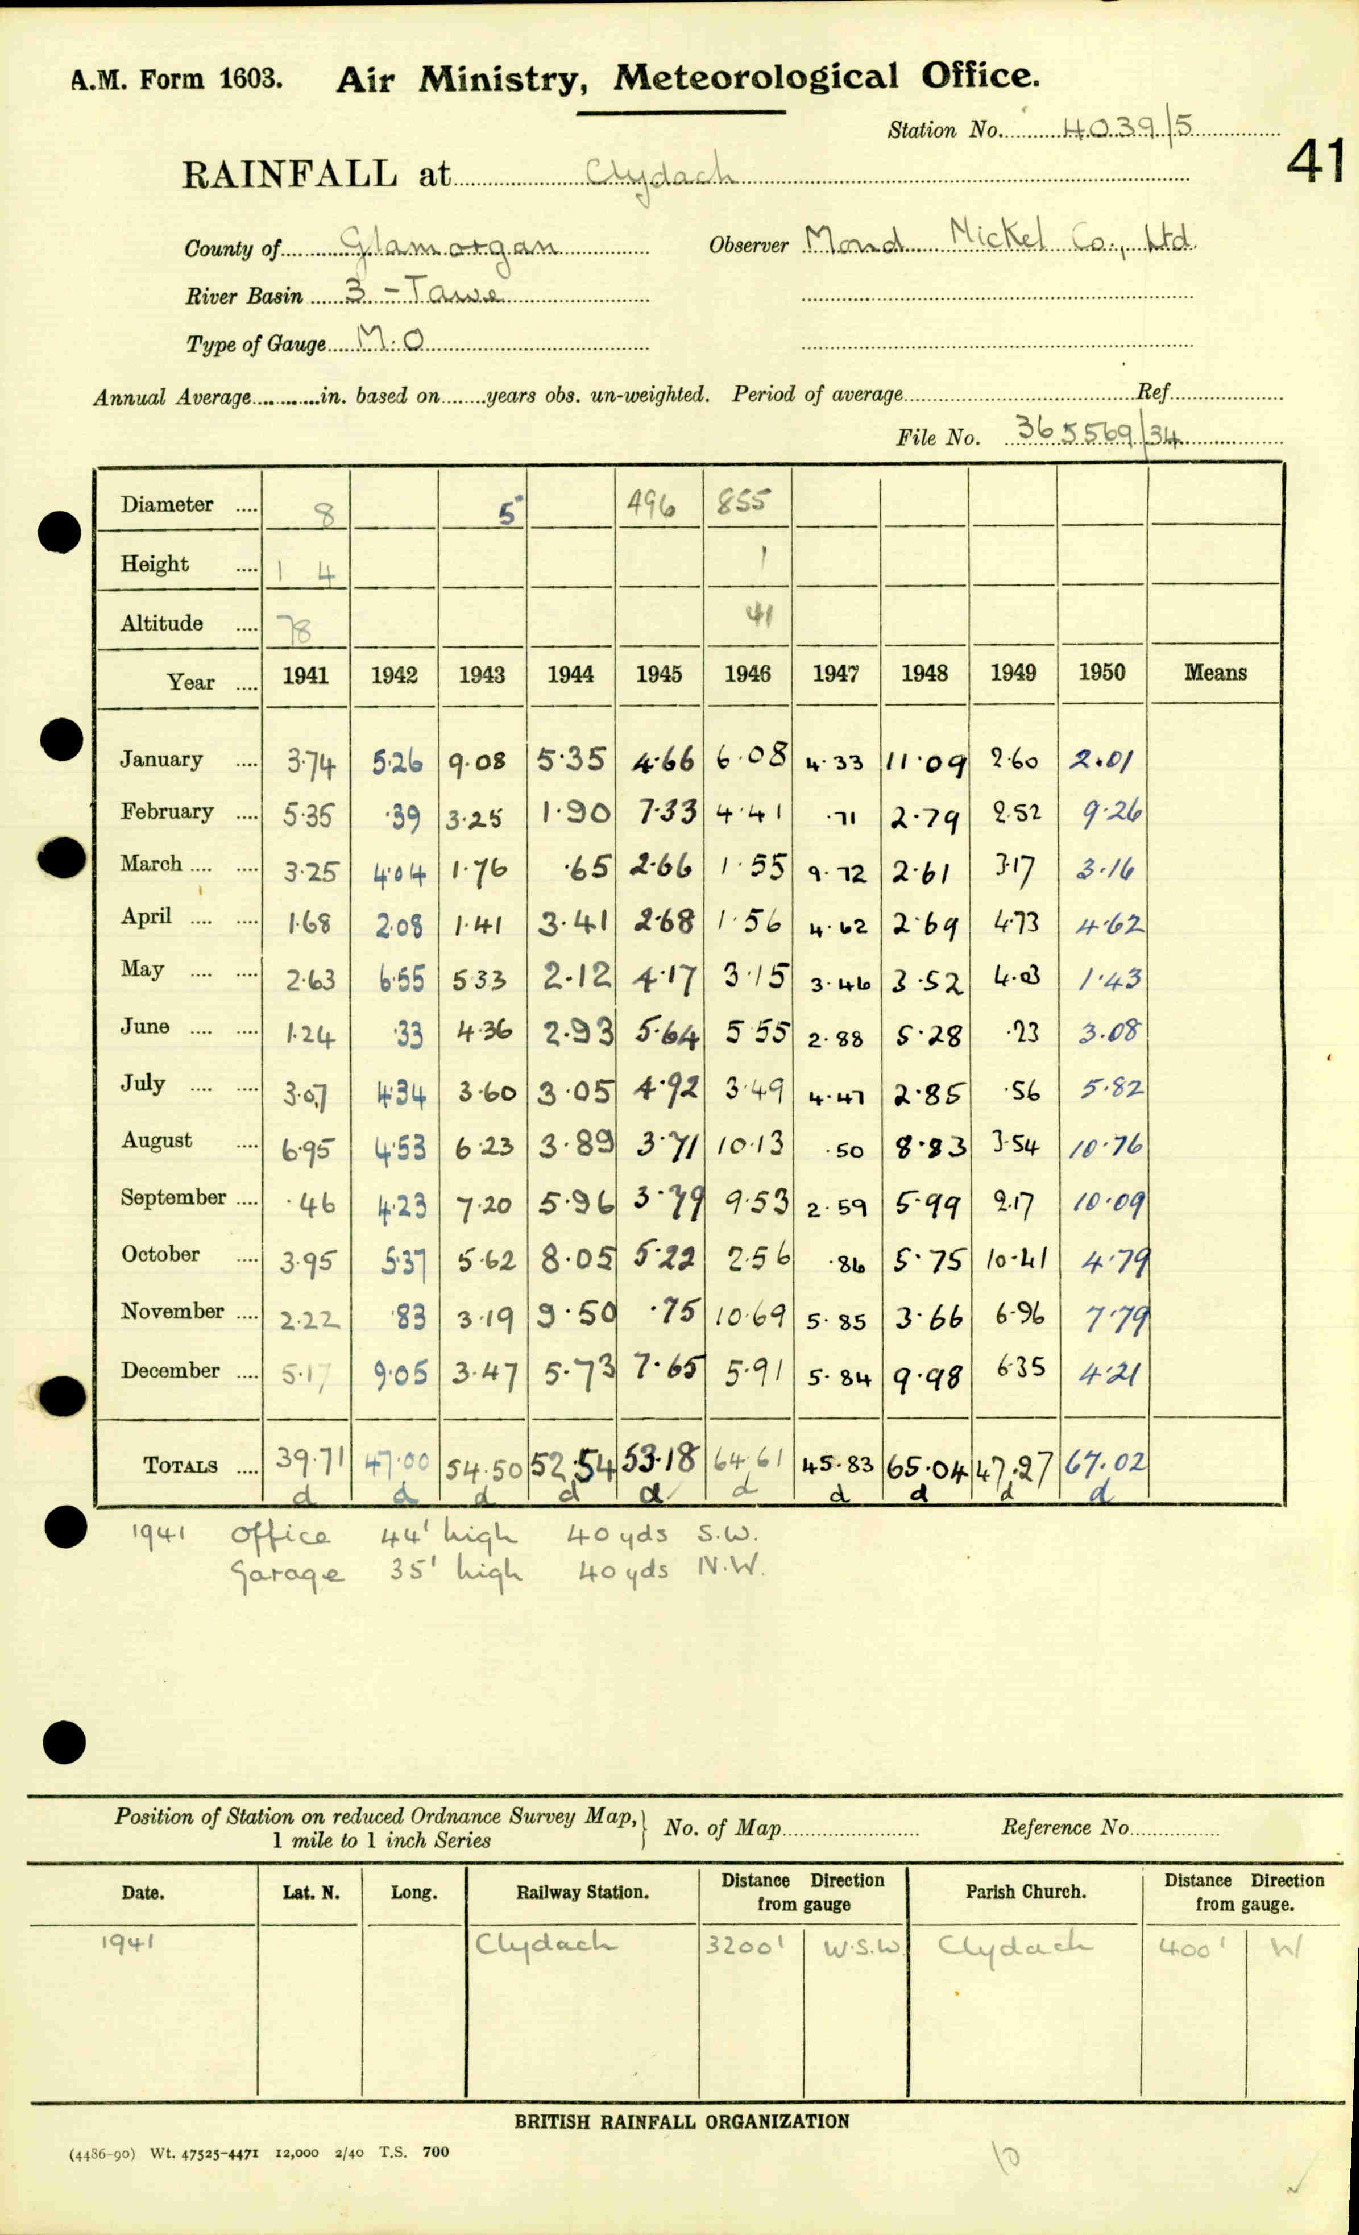 A.M. Form 1603. Air Ministry, Meteorological Office.
Station No. 4039/5
41
RAINFALL at Clydach
County of Glamorgan Observer Mond Nickel Co., Ltd.
River Basin 3 - Tawe
Type of Gauge M.O
Annual Average in. based on years obs. un-weighted. Period of average Ref
File No. 365569/34
Diameter 8 5 496 855
Height 1 4 1
Altitude 78 41
Year 1941 1942 1943 1944 1945 1946 1947 1948 1949 1950 Means
January 3.74 5.26 9.08 5.35 4.66 6.08 4.33 11.09 2.60 2.01
February 5.35 .39 3.25 1.90 7.33 4.41 .71 2.79 2.52 9.26
March 3.25 4.04 1.76 .65 2.66 1.55 9.72 2.61 3.17 3.16
April 1.68 2.08 1.41 3.41 2.68 1.56 4.62 2.69 4.73 4.62
May 2.63 6.55 5.33 2.12 4.17 3.15 3.46 3.52 4.03 1.43
June 1.24 .33 4.36 2.93 5.64 5.55 2.88 5.28 .23 3.08
July 3.07 4.34 3.60 3.05 4.92 3.49 4.47 2.85 .56 5.82
August 6.95 4.53 6.23 3.89 3.71 10.13 .50 8.83 3.54 10.76
September .46 4.23 7.20 5.96 3.79 9.53 2.59 5.99 2.17 10.09
October 3.95 5.37 5.62 8.05 5.22 2.56 .86 5.75 10.41 4.79
November 2.22 .83 3.19 9.50 .75 10.69 5.85 3.66 6.96 7.79
December 5.17 9.05 3.47 5.73 7.65 5.91 5.84 9.98 6.35 4.21
TOTALS 39.71 47.00 54.50 52.54 53.18 64.61 45.83 65.04 47.27 67.02
d d d d d d d d d d
1941 Office 44' high 40 yds S.W.
Garage 35' high 40 yds N.W.
Position of Station on reduced Ordnance Survey Map, 1 mile to 1 inch Series No. of Map Reference No.
Date. Lat. N. Long. Railway Station. Distance Direction from gauge Parish Church. Distance Direction from gauge.
1941 Clydach 3200' W.S.W. Clydach 400' W
BRITISH RAINFALL ORGANIZATION
(4486-90) Wt. 47525-4471 12,000 2/40 T.S. 700